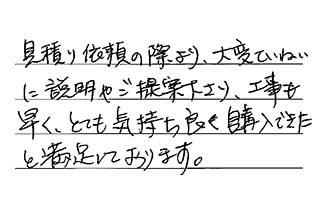 見積り依頼の際より、大変ていねい
に説明やご提案下さり、工事も
早く、とても気持ち良く購入できた
と満足しております。